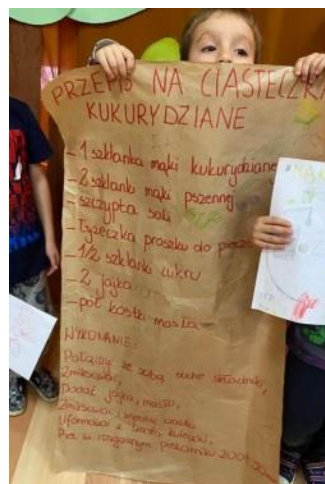 PRZEPIS NA CIASTECZKA
KUKURYDZIANE
- 1 szklanka mąki kukurydzianej
- 2 szklanki mąki pszennej
- szczypta soli
- łyżeczka proszku do
- 1/2 szklanki cukru
- 2 jajka
- pół kostki masła
WYKONANIE:
Połączyć ze sobą suche składniki,
Zmiksować,
Dodać jajka, masło,
Zmiksować i
Uformować z kuleczki,
Piec w rozgrzanym piekarniku 200°